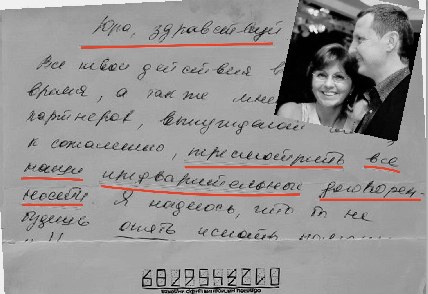 Юра, здравствуй
Все твои действия в
время, а так же мне
партнеров, вынуждали
к сожалению, пересмотреть все
наши предварительные договорен-
ности. Я надеюсь, что ты не
будешь опять искать